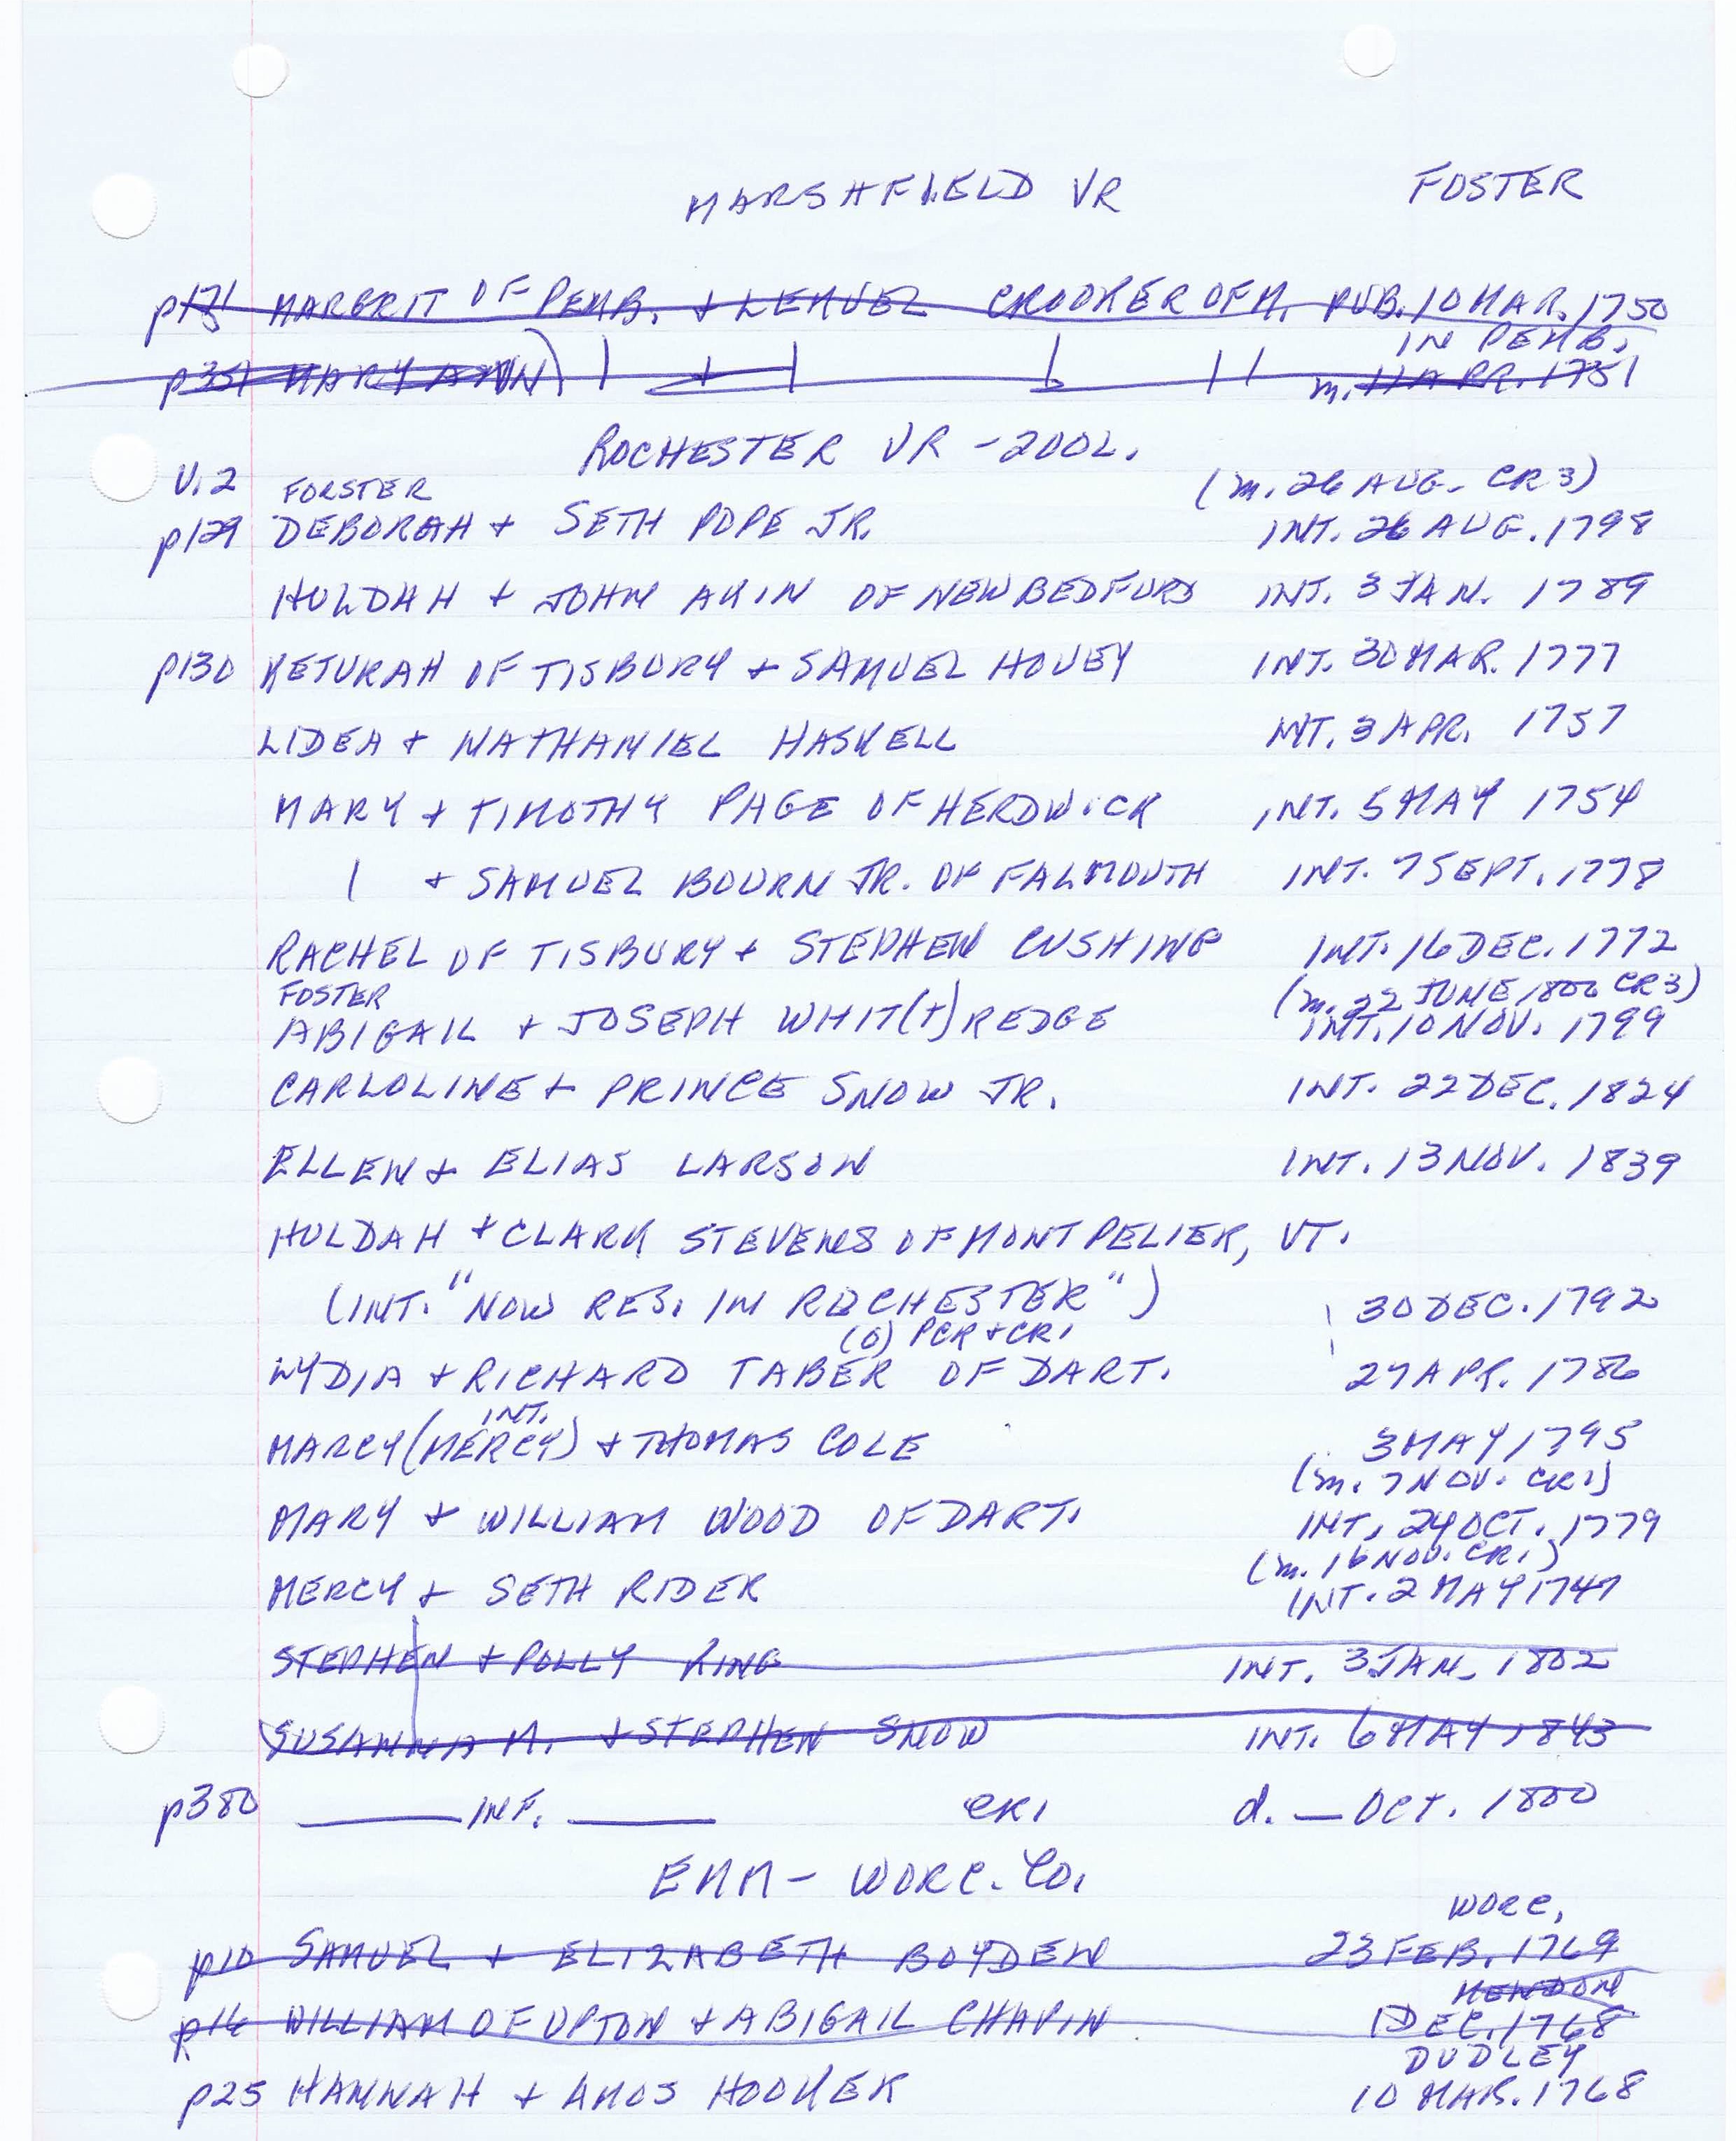 MARSHFIELD VR FOSTER
p171 MARGRIT OF PEMB. + LEMUEL CROOKER OF M. PUB. 10 MAR. 1750
IN PEMB.
p351 MARY ANN) | + | | | m. 11 APR. 1751
ROCHESTER VR - 200L.
V.2 FORSTER (m. 26 AUG. CR3)
p129 DEBORAH + SETH POPE JR. INT. 26 AUG. 1798
HULDAH + JOHN AKIN OF NEW BEDFORD INT. 3 JAN. 1789
p130 KETURAH OF TISBURY + SAMUEL HOVEY INT. 30 MAR. 1777
LIDEA + NATHANIEL HASKELL INT. 3 APR. 1757
MARY + TIMOTHY PAGE OF HERDWICK INT. 5 MAY 1754
| + SAMUEL BOURN JR. OF FALMOUTH INT. 7 SEPT. 1778
RACHEL OF TISBURY + STEPHEN CUSHING INT. 16 DEC. 1772
FOSTER (m. 22 JUNE 1800 CR3)
ABIGAIL + JOSEPH WHIT(T)REDGE INT. 10 NOV. 1799
CARLOLINE + PRINCE SNOW JR. INT. 22 DEC. 1824
ELLEN + ELIAS LARSON INT. 13 NOV. 1839
HULDAH + CLARK STEVENS OF MONTPELIER, VT.
(INT. "NOW RES. IN ROCHESTER") 30 DEC. 1792
(6) PCR + CR1
LYDIA + RICHARD TABER OF DART. 27 APR. 1786
INT.
MARCY (MERCY) + THOMAS COLE 3 MAY 1795
(m. 7 NOV. CR1)
MARY + WILLIAM WOOD OF DART. INT. 24 OCT. 1779
(m. 16 NOV. CR1)
MERCY + SETH RIDER INT. 2 MAY 1747
STEPHEN + POLLY RING INT. 3 JAN. 1802
SUSANNA M. + STEPHEN SNOW INT. 6 MAY 1843
p380 ____ INF. ____ CR1 d. — OCT. 1800
EMM - WORC. CO.
WORC.
p10 SAMUEL + ELIZABETH BOYDEN 23 FEB. 1769
MENDON
p16 WILLIAM OF UPTON + ABIGAIL CHAPIN 1 DEC. 1768
DUDLEY
p25 HANNAH + AMOS HOOKER 10 MAR. 1768